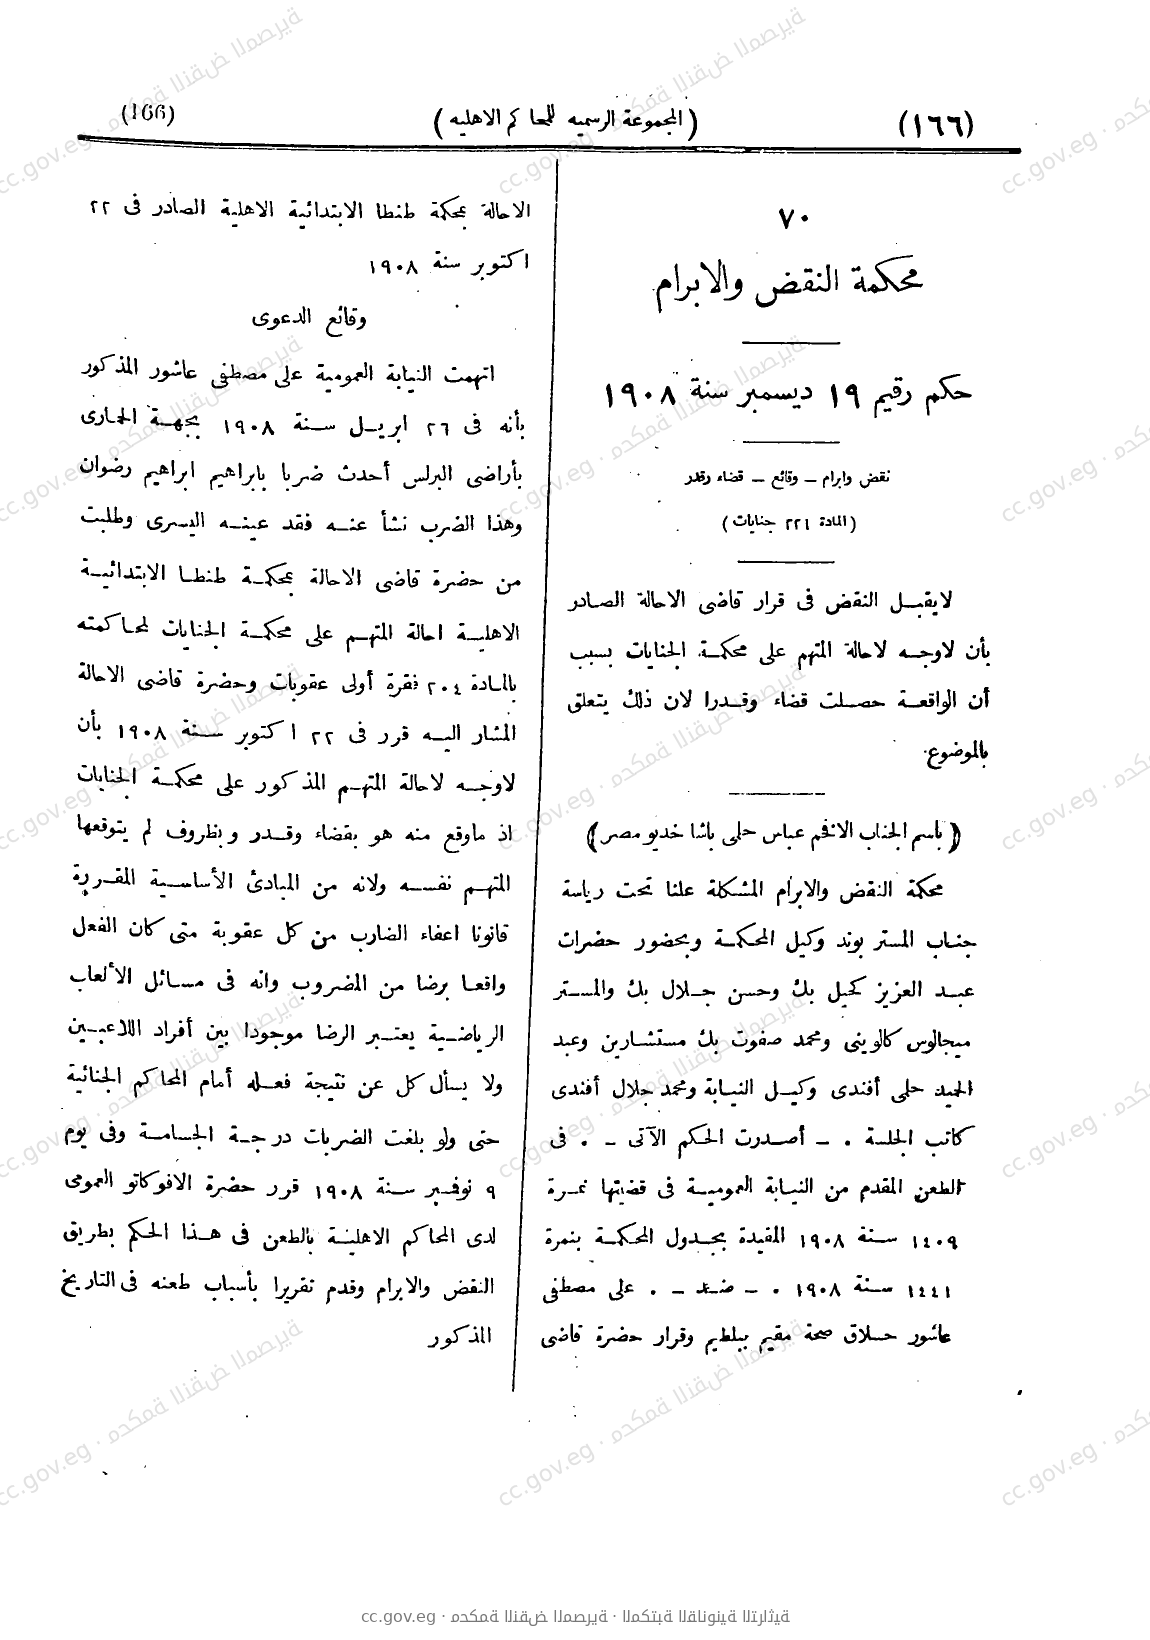 (166)
(المجموعة الرسميه للمحاكم الاهليه)
(١٦٦)
٧٠
محكمة النقض والابرام
حكم رقيم ١٩ ديسمبر سنة ١٩٠٨
نقض وابرام – وقائع – قضاء وقدر
(المادة ٢٢١ جنايات)
لايقبل النقض فى قرار قاضى الاحالة الصادر
بأن لاوجه لاحالة المتهم على محكمة الجنايات بسبب
أن الواقعة حصلت قضاء وقدرا لان ذلك يتعلق
بالموضوع
(باسم الجناب الافخم عباس حلمى باشا خديو مصر)
محكمة النقض والابرام المشكلة علنا تحت رياسة
جناب المستر بوند وكيل المحكمة وبحضور حضرات
عبد العزيز كحيل بك وحسن جلال بك والمستر
ميجالوس كالوينى ومحمد صفوت بك مستشارين وعبد
الحميد حلمى أفندى وكيل النيابة ومحمد جلال أفندى
كاتب الجلسة . – أصدرت الحكم الآتى – . فى
الطعن المقدم من النيابة العمومية فى قضيتها نمرة
١٤٠٩ سنة ١٩٠٨ المقيدة بجدول المحكمة بنمرة
١٤٤١ سنة ١٩٠٨ . – ضد – . على مصطفى
عاشور حلاق صحة مقيم ببلطيم وقرار حضرة قاضى
الاحالة بمحكمة طنطا الابتدائية الاهلية الصادر فى ٢٢
اكتوبر سنة ١٩٠٨
وقائع الدعوى
اتهمت النيابة العمومية على مصطفى عاشور المذكور
بأنه فى ٢٦ ابريل سنة ١٩٠٨ بجهة الحمارى
بأراضى البرلس أحدث ضربا بابراهيم ابراهيم رضوان
وهذا الضرب نشأ عنه فقد عينه اليسرى وطلبت
من حضرة قاضى الاحالة بمحكمة طنطا الابتدائية
الاهلية احالة المتهم على محكمة الجنايات لمحاكمته
بالمادة ٢٠٤ فقرة أولى عقوبات وحضرة قاضى الاحالة
المشار اليه قرر فى ٢٢ اكتوبر سنة ١٩٠٨ بأن
لاوجه لاحالة المتهم المذكور على محكمة الجنايات
اذ ماوقع منه هو بقضاء وقدر وبظروف لم يتوقعها
المتهم نفسه ولانه من المبادئ الأساسية المقررة
قانونا اعفاء الضارب من كل عقوبة متى كان الفعل
واقعا برضا من المضروب وانه فى مسائل الألعاب
الرياضية يعتبر الرضا موجودا بين أفراد اللاعبين
ولا يسأل كل عن نتيجة فعله أمام المحاكم الجنائية
حتى ولو بلغت الضربات درجة الجسامة وفى يوم
٩ نوفمبر سنة ١٩٠٨ قرر حضرة الافوكاتو العمومى
لدى المحاكم الاهلية بالطعن فى هذا الحكم بطريق
النقض والابرام وقدم تقريرا بأسباب طعنه فى التاريخ
المذكور
cc.gov.eg · محكمة النقض المصرية · المكتبة القانونية التراثية